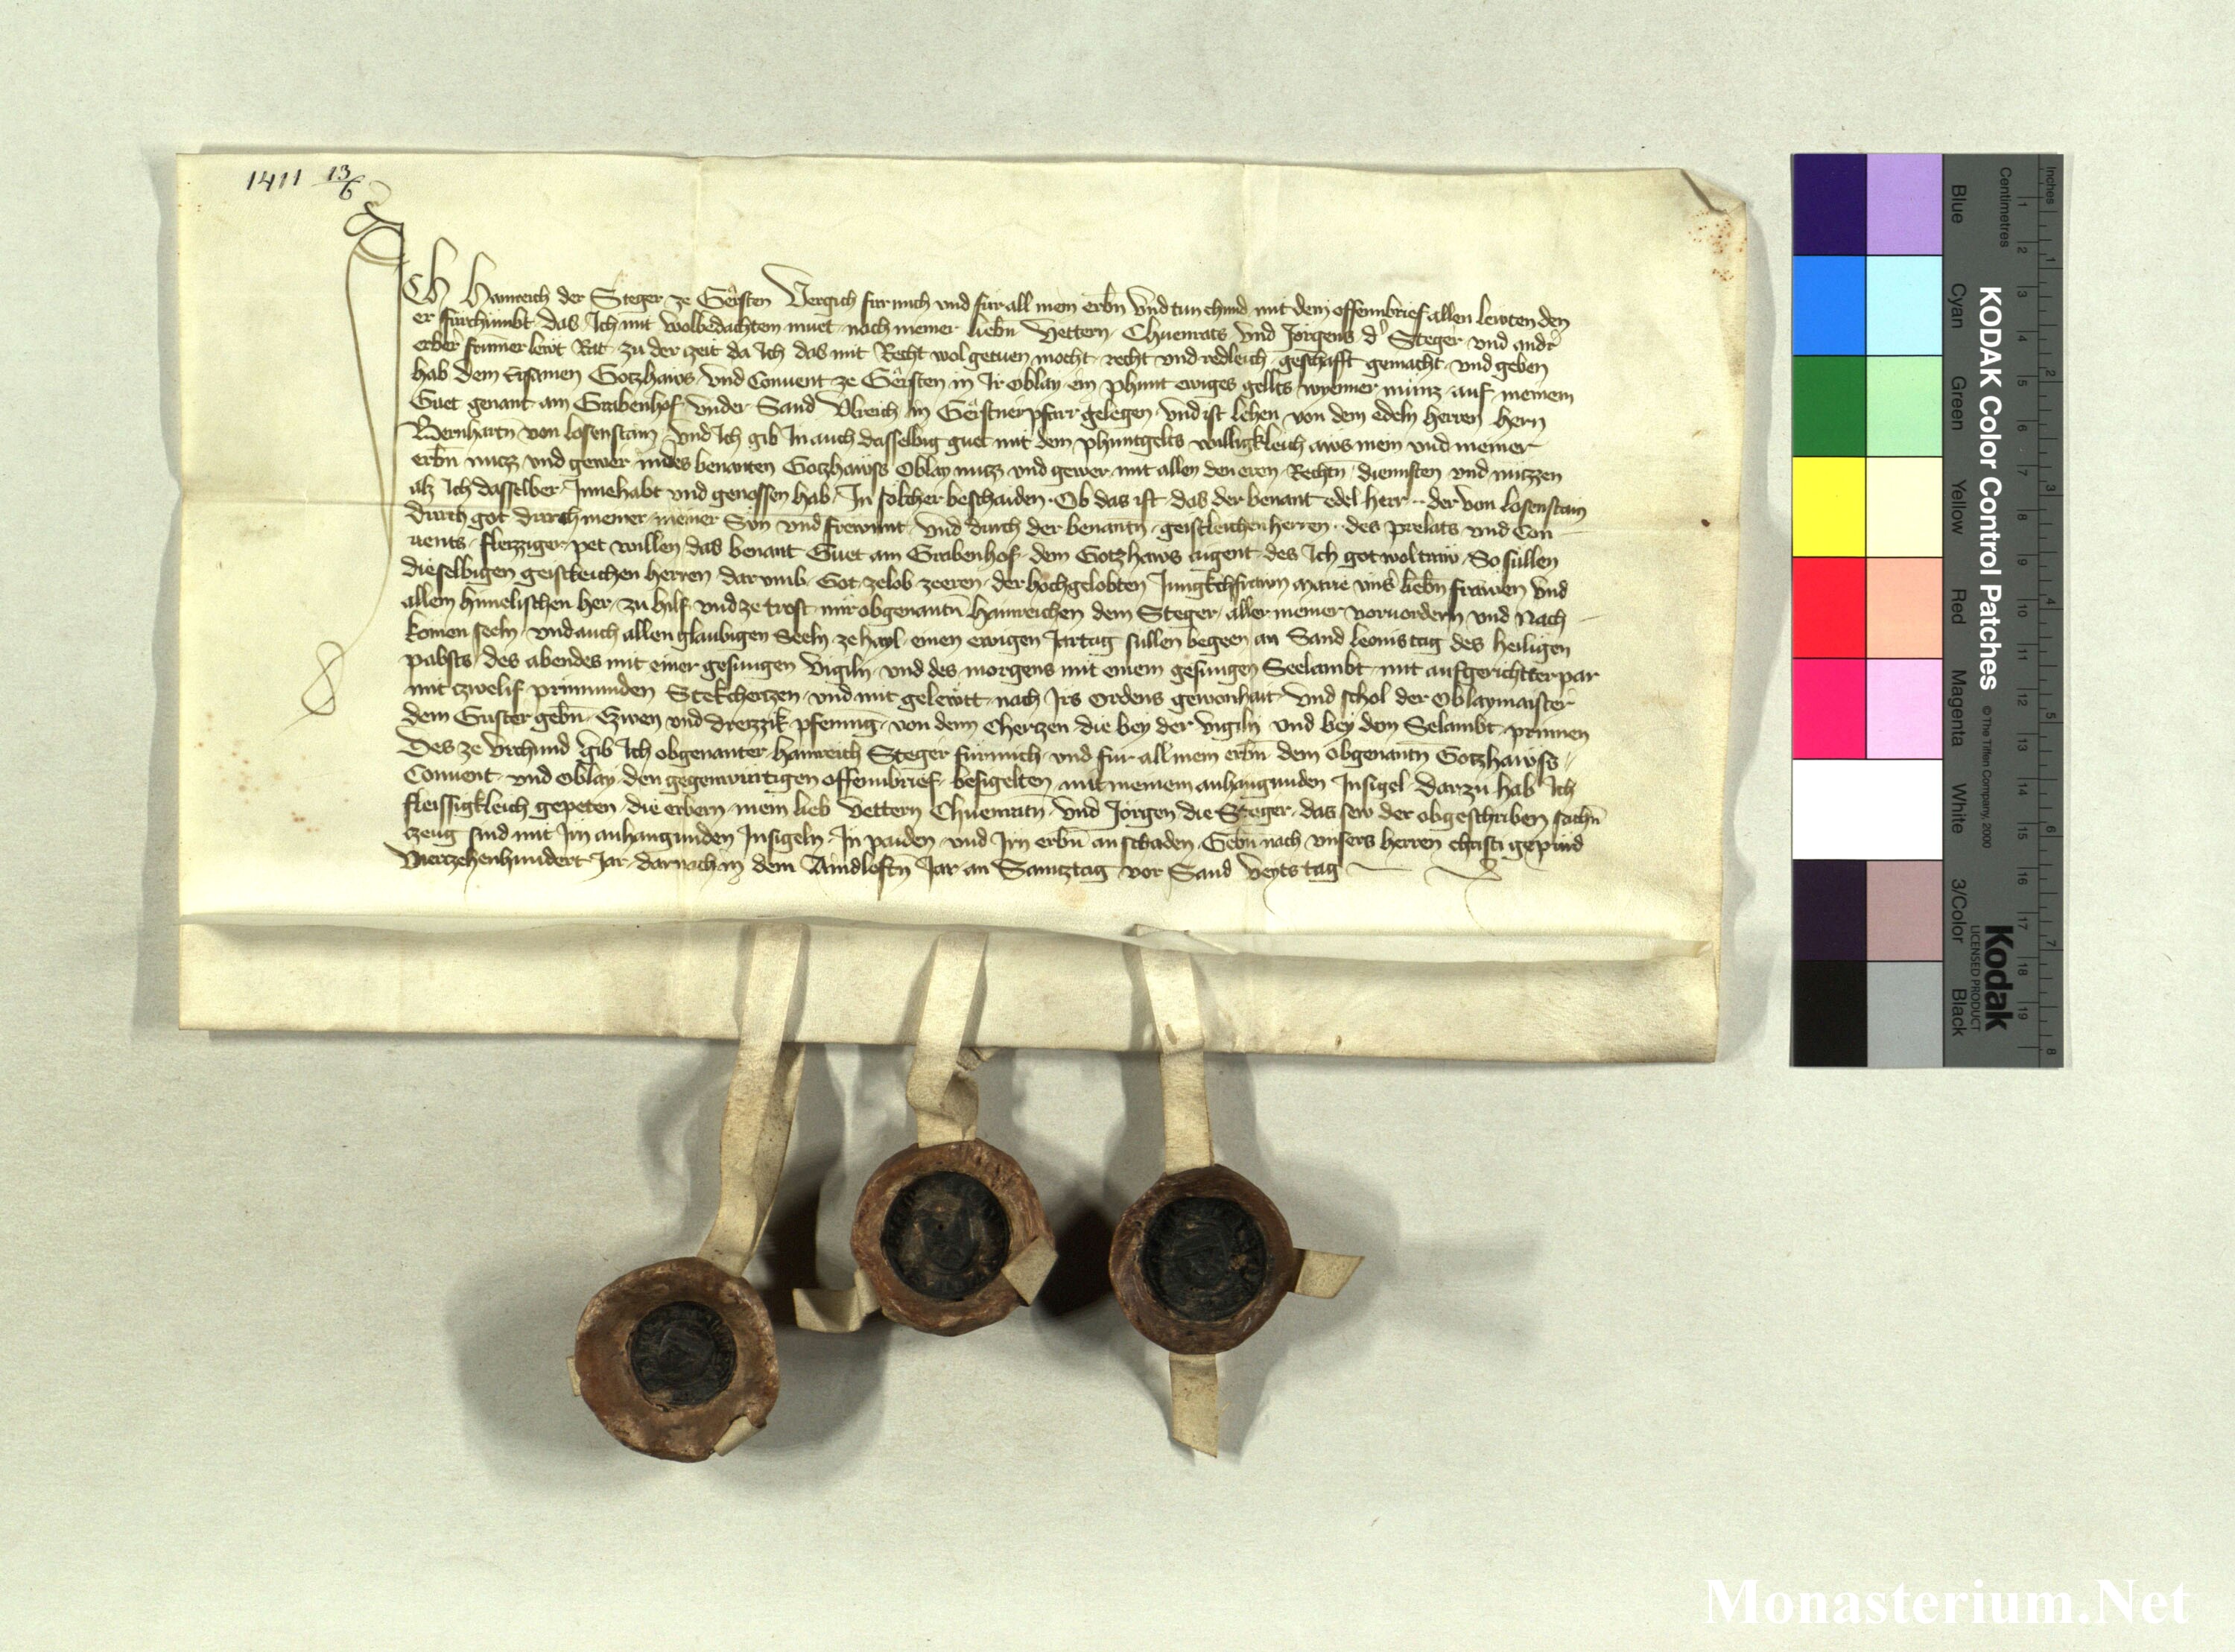 1411 13/6
Ich Hainreich der Steger ze Gêrsten Vergich fur mich und fur all mein erbn Und tun chund mit dem offennbrief allen lewten den
er furchumbt das Ich mit wolbedachten muet nach meiner liebn Vettern Chuenrats und Jorgens d' Steger und andr
erber frumer lewt Rat zu der zeit da Ich das mit Recht wol getuen mocht recht und redleich geschafft gemacht und geben
hab dem Ersamen Gotzhaws und Convent ze Gêrsten in Ir oblay ein phunt ewiges gelts wyenner munz auf meinem
Guet genant am Grabenhof under Sand Ulreich in Gerstner pfarr gelegen und ist lehen von dem edeln herren hern
Bernhartn von losenstain und Ich gib In auch dasselbig guet mit dem phuntgelts willigkleich aws mein und meiner
erbn nutz und gewer in des benanten Gotzhawss Oblay nutz und gewer mit allen den eren Rechtn diennsten und nutzzen
alz Ich dasselber Innehabt und genossen hab In solcher beschaiden Ob das ist das der benant edel herr der von losenstain
durch got durch meiner meiner Sün und frewnnt und durch der benantn geistleichen herren des prelats und Con
uents fleizziger pet willen das benant Guet am Grabenhof dem Gotzhaws aigent des Ich got wol traw So sullen
dieselbigen geistleichen herren dar umb Got ze lob ze eren der hochgelobten Jungkchfrawn Marie uns' liebn frawen und
allem himelischen her zu hilf und ze trost mir obgenantn Hainreichen dem Steger aller meiner vorvordern und Nach
komen seeln und auch allen glaubigen Seeln ze hayl einen ewigen Jartag sullen begeen an Sand leonis tag des heiligen
pabsts des abendes mit einer gesungen Vigiln und des morgens mit einem gesungen Seelambt mit aufgerichtter par
mit tzwelif prinnunden Stekcherzen und mit gelewtt nach Irs Ordens gewonhait Und schol der Oblaymaister
dem Guster gebn Tzwen und dreizzik pfennig von denn Cherzen die bey der Vigiln und bey dem Selambt prinnen
Des ze Urchund gib Ich obgenanter Hainreich Steger fur mich und fur all mein erbn dem obgenantn Gotzhawss
Convent und oblay den gegenwürtigen offennbrief besigelten mit meinem anhangunden Insigel Darzu hab Ich
fleissigkleich gepeten die erbern mein lieb Vettern Chuenratn und Jörgen die Steger das sew der obgeschriben sachn
tzeug sind mit Irn anhangunden Insigeln In paiden und Irn erbn an schaden Gebn nach unsers herren christi gepürd
Viertzehenhundert Jar darnach in dem Aindleftn Jar an Samtztag vor Sand Veyts tag
Inches
Centimetres
KODAK Color Control Patches
© The Tiffen Company, 2000
Kodak
LICENSED PRODUCT
Blue
Cyan
Green
Yellow
Red
Magenta
White
3/Color
Black
1 2 3 4 5 6 7 8 9 10 11 12 13 14 15 16 17 18 19
1 2 3 4 5 6 7 8
Monasterium.Net